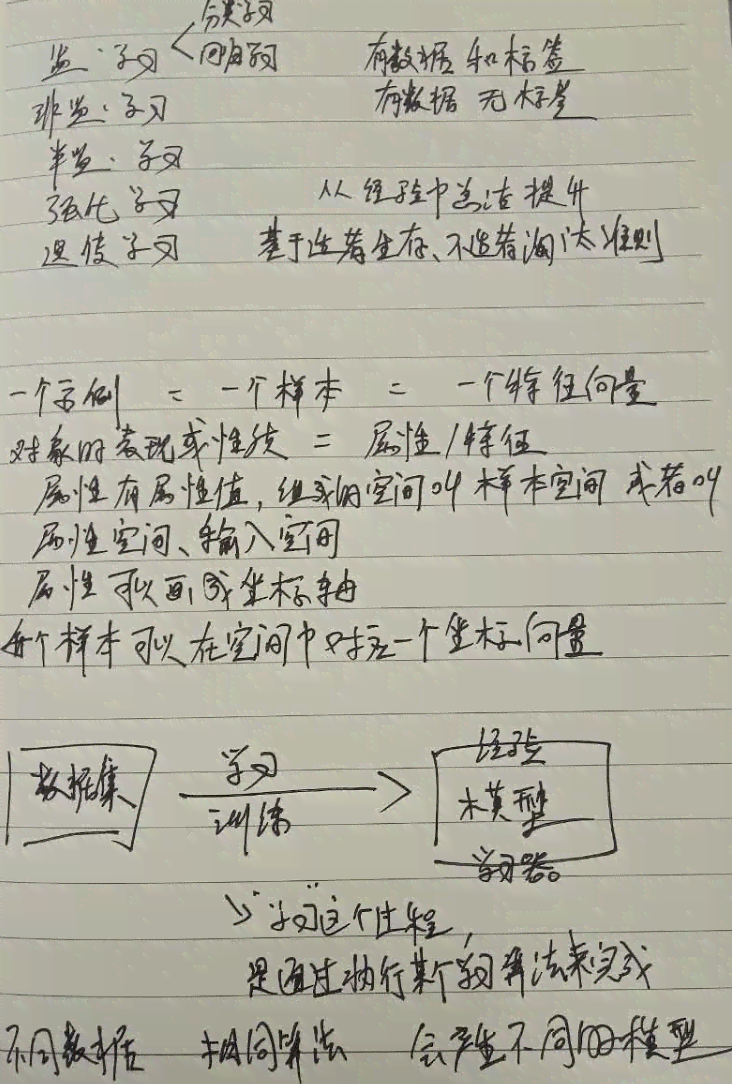 分类学习
监·学习 回归学习 有数据和标签
非监·学习 有数据 无标签
半监·学习
强化学习 从经验中总结提升
遗传学习 基于适者生存、不适者淘汰准则
一个示例 = 一个样本 = 一个特征向量
对象的表现或性质 = 属性/特征
属性有属性值,组成的空间叫样本空间或者叫
属性空间、输入空间
属性可以画成坐标轴
每个样本可以在空间中对应一个坐标向量
数据集 学习 训练 经验 模型 学习器。
"学习"这个过程,
是通过执行某个学习算法来完成
不同数据 相同算法 会产生不同的模型